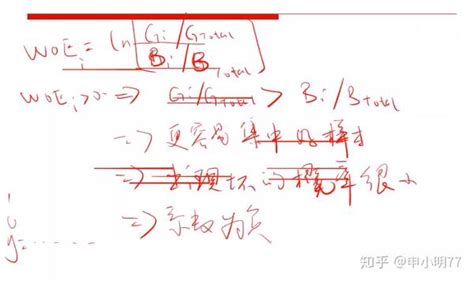 WOE_i = ln[(G_i/G_Total)/(B_i/B_Total)]
WOE_i>0 => G_i/G_Total > B_i/B_Total
=> 更容易集中好样本
=> 出现坏的概率很小
=> 系数为负
y=......
知乎 @申小明77